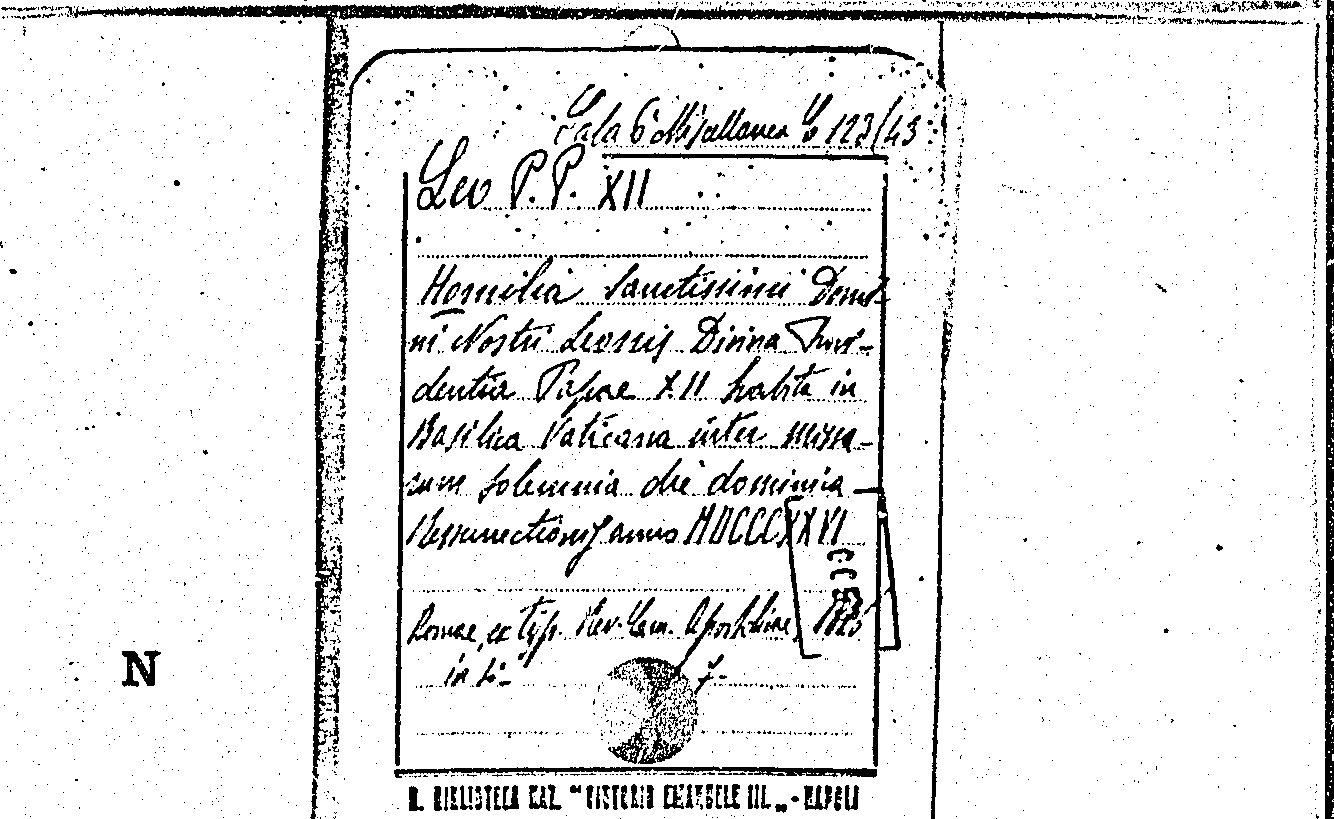 Sala 6 Miscellanea C 123/43
Leo P.P. XII
Homilia Sanctissimi Domi-
ni Nostri Leonis Divina Provi-
dentia Papae XII habita in
Basilica Vaticana inter missa-
rum solemnia die dominica
Ressurrectionis anno MDCCCXXVI
Romae, ex typ. Rev. Cam. Apostolicae,
in
N
R. BIBLIOTECA NAZ. "VITTORIO EMANUELE III„ - NAPOLI